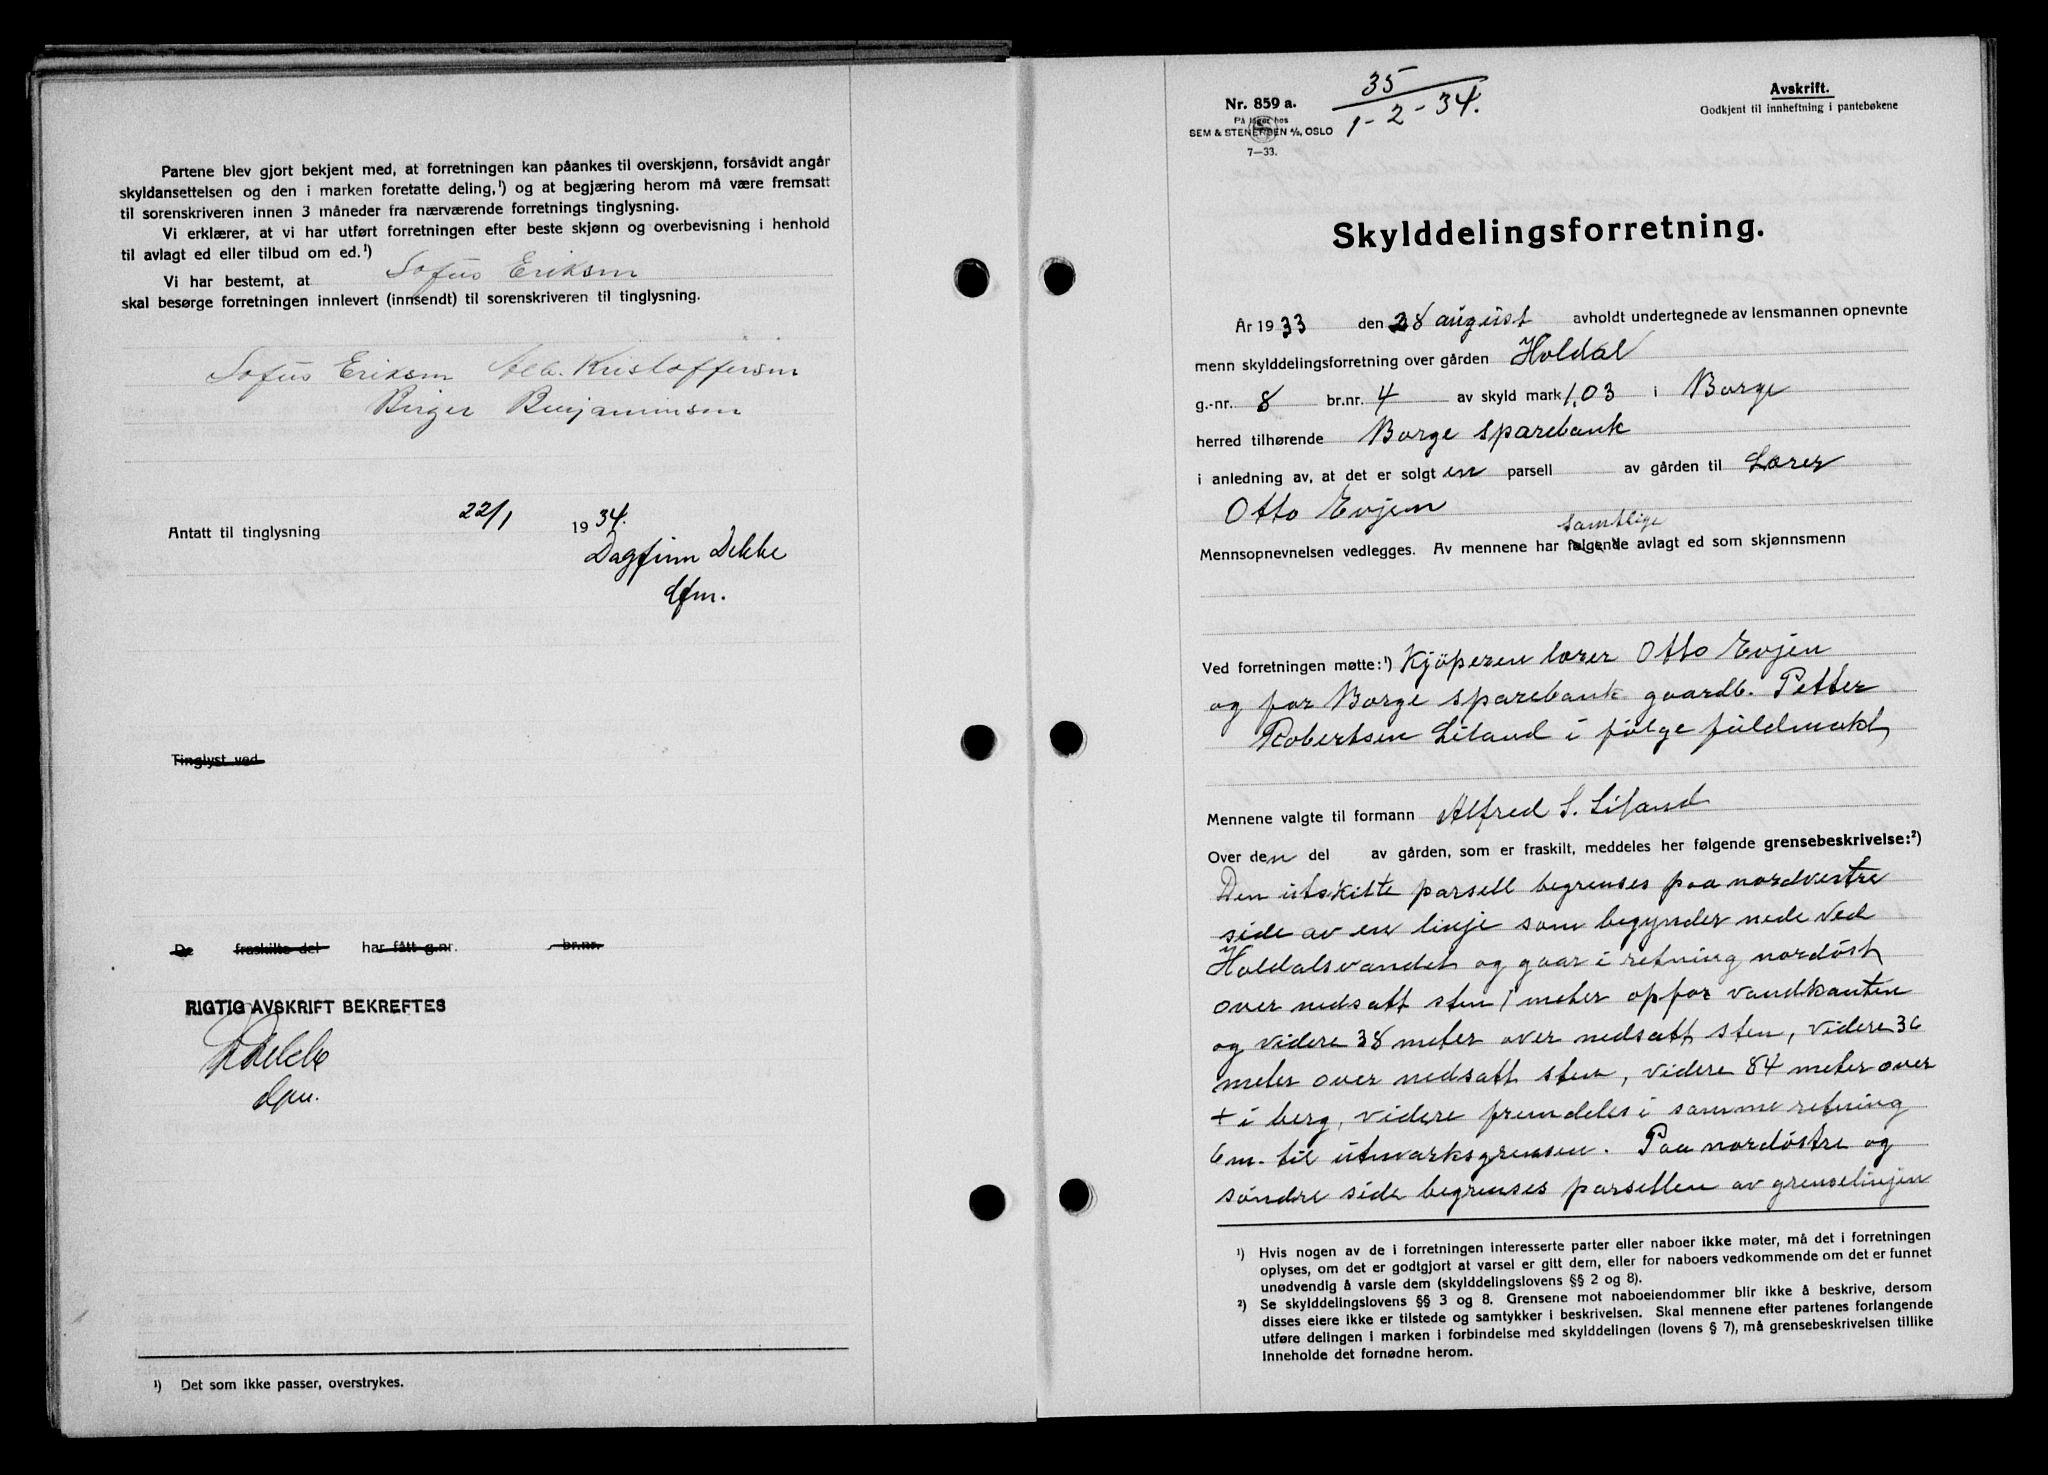 Partene blev gjort bekjent med, at forretningen kan påankes til overskjønn, forsåvidt angår
skyldansettelsen og den i marken foretatte deling,¹) og at begjæring herom må være fremsatt
til sorenskriveren innen 3 måneder fra nærværende forretnings tinglysning.
Vi erklærer, at vi har utført forretningen efter beste skjønn og overbevisning i henhold
til avlagt ed eller tilbud om ed.¹)
Vi har bestemt, at Sofus Eriksen
skal besørge forretningen innlevert (innsendt) til sorenskriveren til tinglysning.
Sofus Eriksen Alb. Kristoffersen
Birger Benjaminsen
Antatt til tinglysning 22/1 1934.
Dagfinn Dekke
dfm.
Tinglyst ved
De fraskilte del har fått g.nr. br.nr.
RIGTIG AVSKRIFT BEKREFTES
DDekke
dfm.
¹) Det som ikke passer, overstrykes.
Nr. 859 a.
På lager hos
SEM & STENERSEN A/S, OSLO
7—33.
35
1-2-34.
Avskrift.
Godkjent til innheftning i pantebøkene
Skylddelingsforretning.
År 1933 den 28 august avholdt undertegnede av lensmannen opnevnte
menn skylddelingsforretning over gården Holdal
g.-nr. 8 br.nr. 4 av skyld mark 1,03 i Borge
herred tilhørende Borge sparebank
i anledning av, at det er solgt en parsell av gården til Lærer
Otto Evjen
samtlige
Mennsopnevnelsen vedlegges. Av mennene har følgende avlagt ed som skjønnsmenn
Ved forretningen møtte:¹) Kjöperen lærer Otto Evjen
og for Borge sparebank gaardb. Petter
Robertsen Liland i følge fuldmakt
Mennene valgte til formann Alfred S. Liland
Over den del av gården, som er fraskilt, meddeles her følgende grensebeskrivelse:²)
Den utskilte parsell begrenses paa nordvestre
side av en linje som begynder nede ved
Holdalsvandet og gaar i retning nordöst
over nedsatt sten 1 meter opfor vandkanten
og videre 38 meter over nedsatt sten, videre 36
meter over nedsatt sten, videre 84 meter over
+ i berg, videre fremdeles i samme retning
6 m. til utmarksgrensen. Paa nordöstre og
söndre side begrenses parsellen av grenselinjen
¹) Hvis nogen av de i forretningen interesserte parter eller naboer ikke møter, må det i forretningen
oplyses, om det er godtgjort at varsel er gitt dem, eller for naboers vedkommende om det er funnet
unødvendig å varsle dem (skylddelingslovens §§ 2 og 8).
²) Se skylddelingslovens §§ 3 og 8. Grensene mot naboeiendommer blir ikke å beskrive, dersom
disses eiere ikke er tilstede og samtykker i beskrivelsen. Skal mennene efter partenes forlangende
utføre delingen i marken i forbindelse med skylddelingen (lovens § 7), må grensebeskrivelsen tillike
inneholde det fornødne herom.